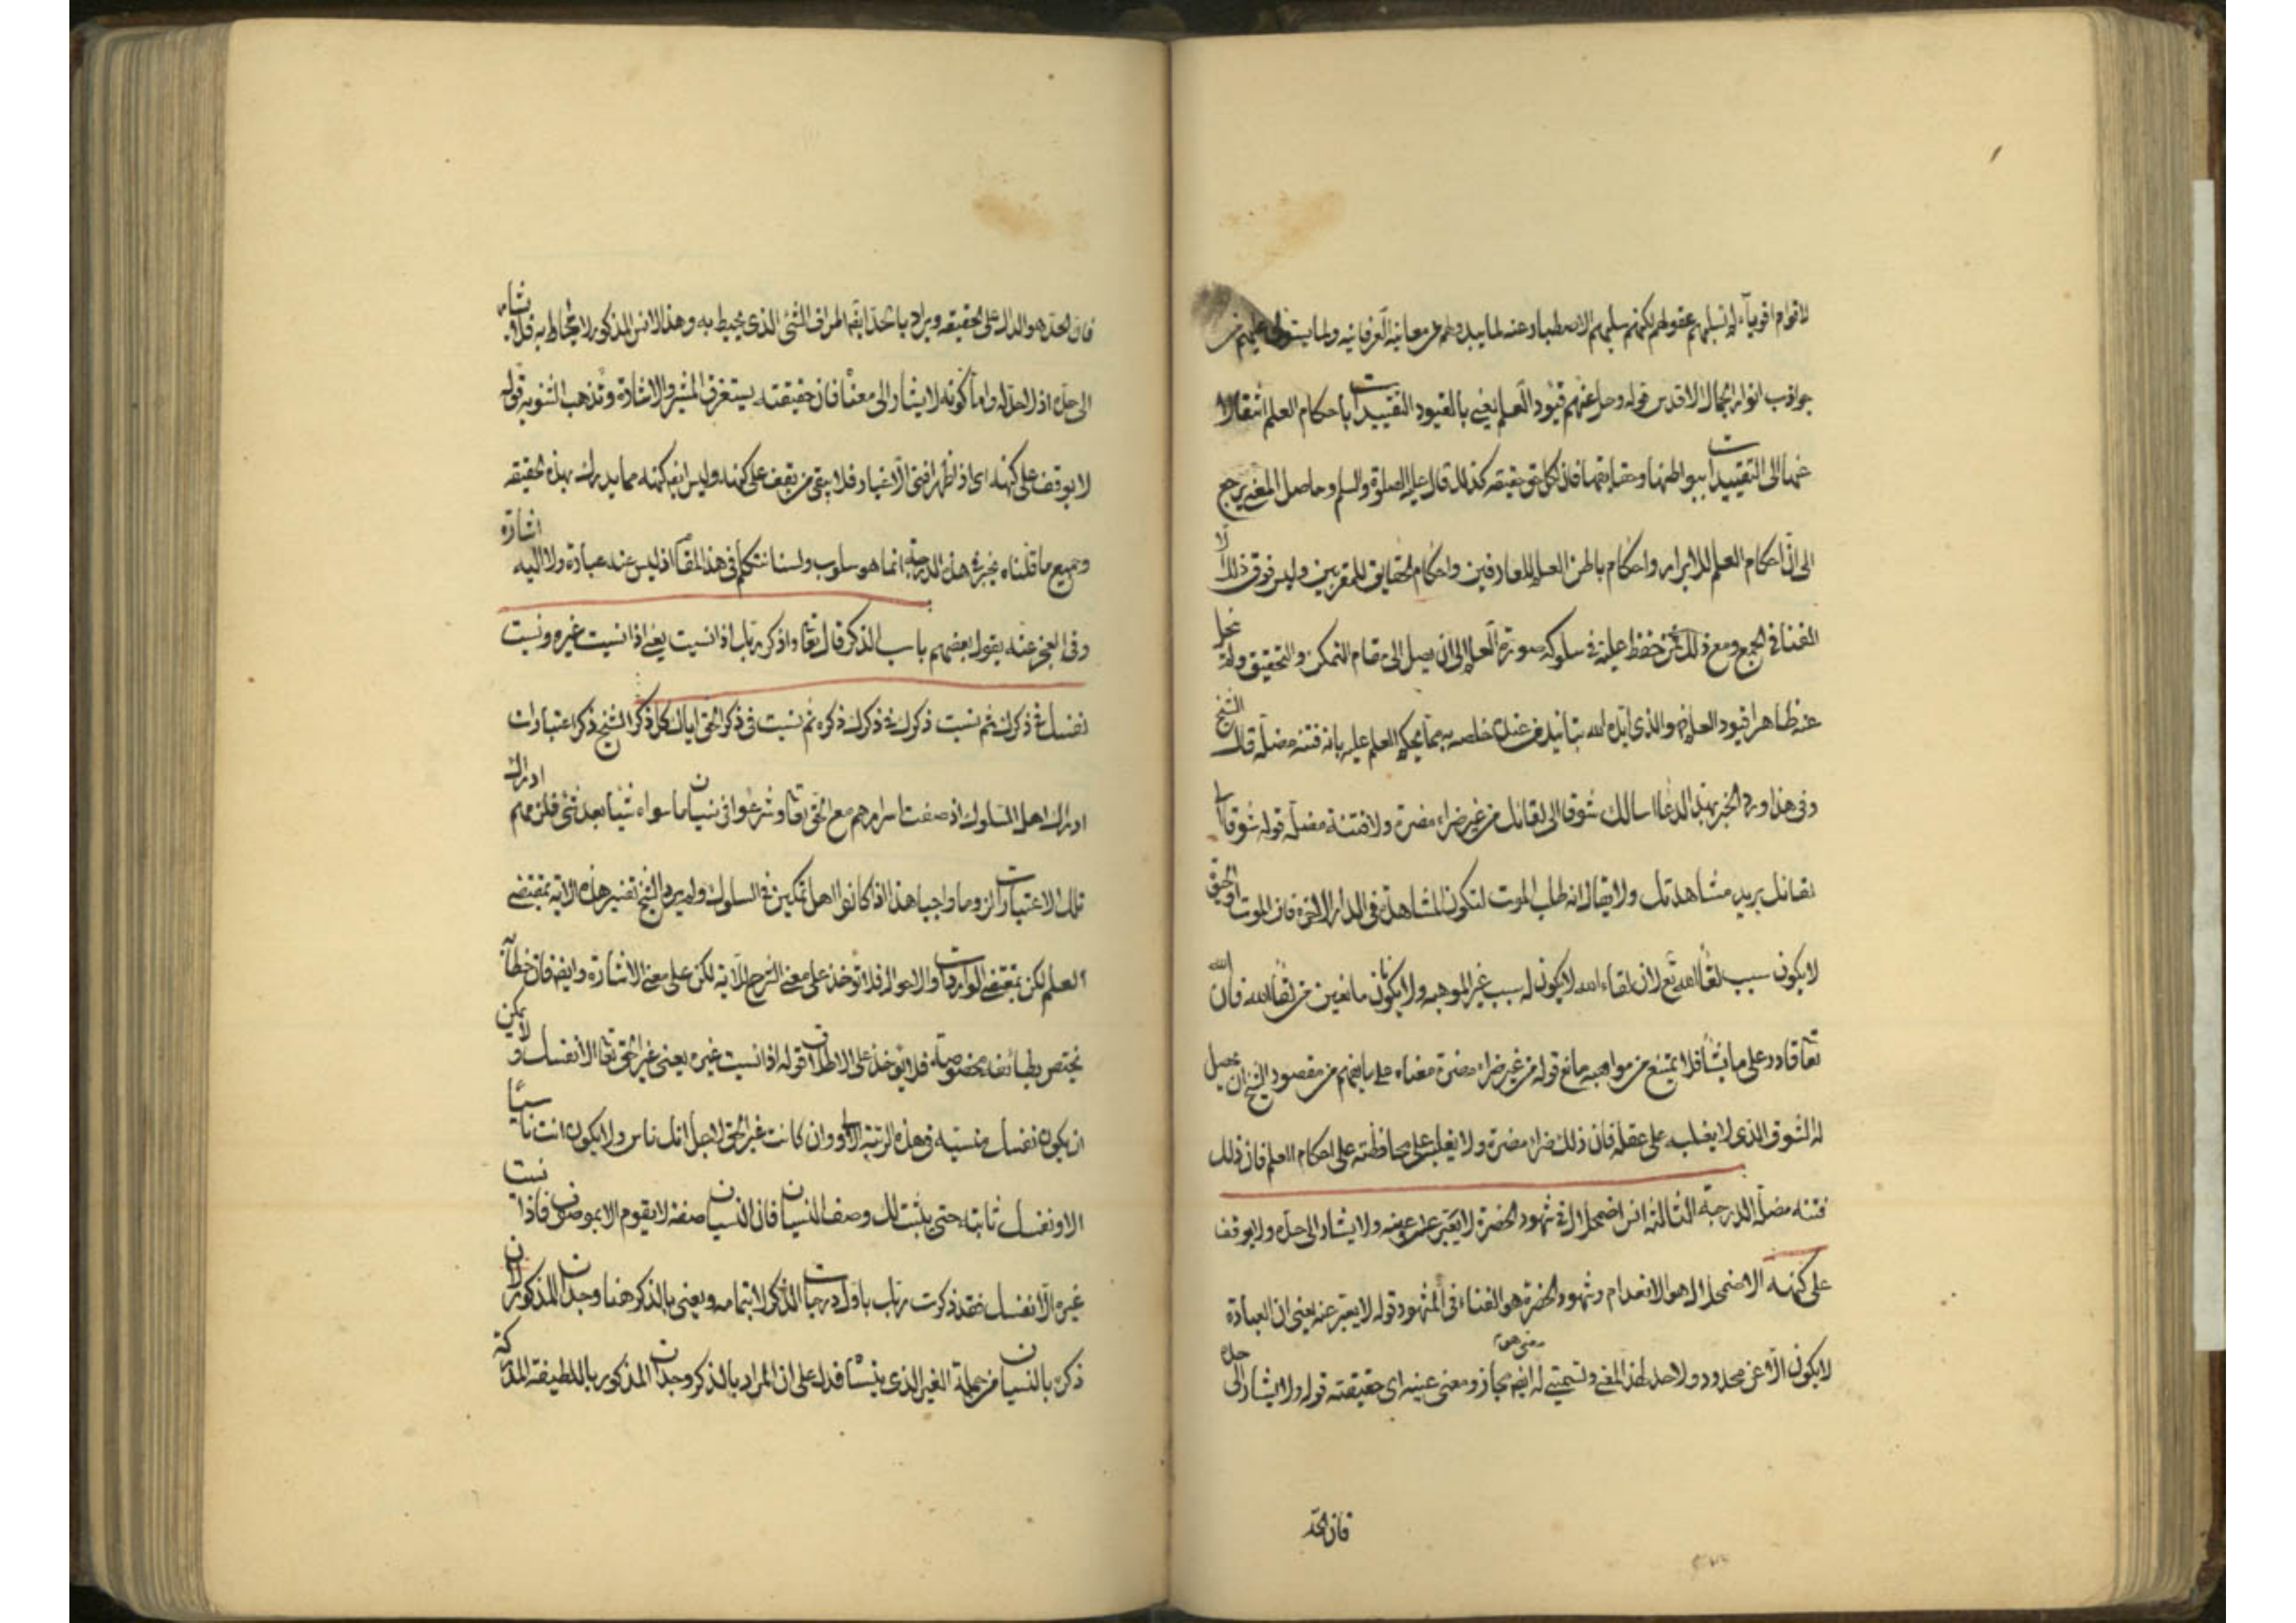 لاقوام اقوياء لم تسلبهم عقولهم لكنهم سلبهم الاصطبار عنه لما يبدو لهم من معانيه العرفانيه ولما يستولى عليهم من
جواذب انوار الجمال الاقدس قوله وحل عنهم قيود العلم يعنى بالقيود التقييدات باحكام العلم انتقالا
عنها الى التقييدات ببواطنها وحقايقها فان لكل حق حقيقه كذلك قال عليه الصلوة والسلم وحاصل المعنى يرجع
الى ان احكام العلم للابرار واحكام باطن العلم للعارفين واحكام الحقايق للمقربين وليس فوق ذلك الا
الفنا فى الجمع ومع ذلك فمن حفظ عليه فى سلوكه صورة العلم الى ان يصل الى مقام التمكن والتحقيق ولم ينحل
عنه ظاهرا قيود العلم فهو الذى ايده الله بتاييد من عنده خلصه به مما يحكم العلم عليه بانه فتنه مضلة قال الشيخ
وفى هذا ورد الخبر بهذا الدعا اسالك شوقا الى لقائك من غير ضراء مضرة ولا فتنة مضلة قوله شوقا الى
لقائك يريد مشاهدتك ولا يقال انه طلب الموت لتكون المشاهدة فى الدار الاخرة فان الموت او الحيوة
لا يكون سبب لقا الله تع لان لقاء الله لا يكون له سبب غير الموهبه ولا يكونان مانعين من لقا الله فان الله
تعا قادر على ما يشا فلا يمتنع من مواهبه مانع قوله من غير ضراء مضرة معناه على ما يفهم من مقصود الشيخ ان يحصل
له الشوق الذى لا يغلبه على عقله فان ذلك ضراء مضرة ولا يغلبه على محافظته على احكام العلم فان ذلك
فتنه مضلة الدرجة الثالثه انس اضمحلال فى شهود الحضرة لا يعبر عن عينه ولا يشار الى حده ولا يوقف
على كنهه الاضمحلال هو الانعدام وشهود الحضرة هو الفناء فى المشهود قوله لا يعبر عنه يعنى ان العبارة
لا يكون الا عن محدود ولا حد لهذا المعنى وتسميتى له ايض مجاز ومعنى عينه اى حقيقته قوله ولا يشار الى حده
فان الحد
فان الحد هو الدال على الحقيقه ويراد بالحد ايضا طرف الشئ الذى يحيط به وهذا الانس المذكور لا يحاط به فلا يشار
الى حده اذ لا حد له واما كونه لا يشار الى معناه فان حقيقته يستغرق المشير والاشارة وتذهب الثنويه قوله
لا يوقف على كنهه اى اذ اظهر افنى الاغيار فلا يبقى من يقف على كنهه وليس ايض كنهه مما يدرك بهذه الحقيقه
وجميع ما قلناه يخبر فى هذه الدرجة انما هو سلوب ولسنا نتكلم فى هذا المقام اذ ليس عنه عبارة ولا اليه اشارة
وفى العجز عنه يقول بعضهم باب الذكر قال تعا واذكر ربك اذا نسيت يعنى اذا نسيت غيره ونسيت
نفسك فى ذكرك ثم نسيت ذكرك فى ذكرك ذكره ثم نسيت فى ذكر الحق اياك كل ذكر الشيخ ذكر اعتبارات
ادراك اهل السلوك اذ صفت اسرارهم مع الحق تعا وشرعوا فى نسيان ما سواه شيئا بعد شئ فلزمهم ادراك
تلك الاعتبارات لزوما واجبا هذا اذا كانوا اهل تمكين فى السلوك ولم يرد الشيخ تفسير هذه الاية بمقتضى
العلم لكن بمقتضى الواردات والاحوال فلا تؤخذ على معنى الشرح للاية لكن على معنى الاشارة وايض فان خطابه
يختص بطائفة مخصوصة فلا يؤخذ على الاطلاق قوله اذا نسيت غيره يعنى غير الحق تعا الا نفسك ولا يمكن
ان يكون نفسك منسيه فى هذه الرتبة الاولى وان كانت غير الحق لاجل انك ناس ولا يكون انت ناسيا
الا ونفسك ثابته حتى يثبت لك وصف النسيان فان النسيان صفة لا يقوم الا بموصوف فاذا نسيت
غيره الا نفسك فقد ذكرت ربك باول درجات الذكر لا بتمامه ويعنى بالذكر هنا وجدان المذكور لان
ذكره بالنسيان من جملة الغير الذى ينسا فدل على ان المراد بالذكر وجدان المذكور باللطيفة المدركة